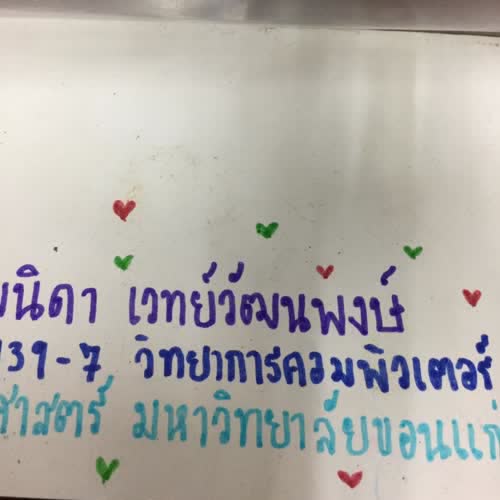 นิดา เวทย์วัฒนพงษ์
39-7 วิทยาการคอมพิวเตอร์
ศาสตร์ มหาวิทยาลัยขอนแก่